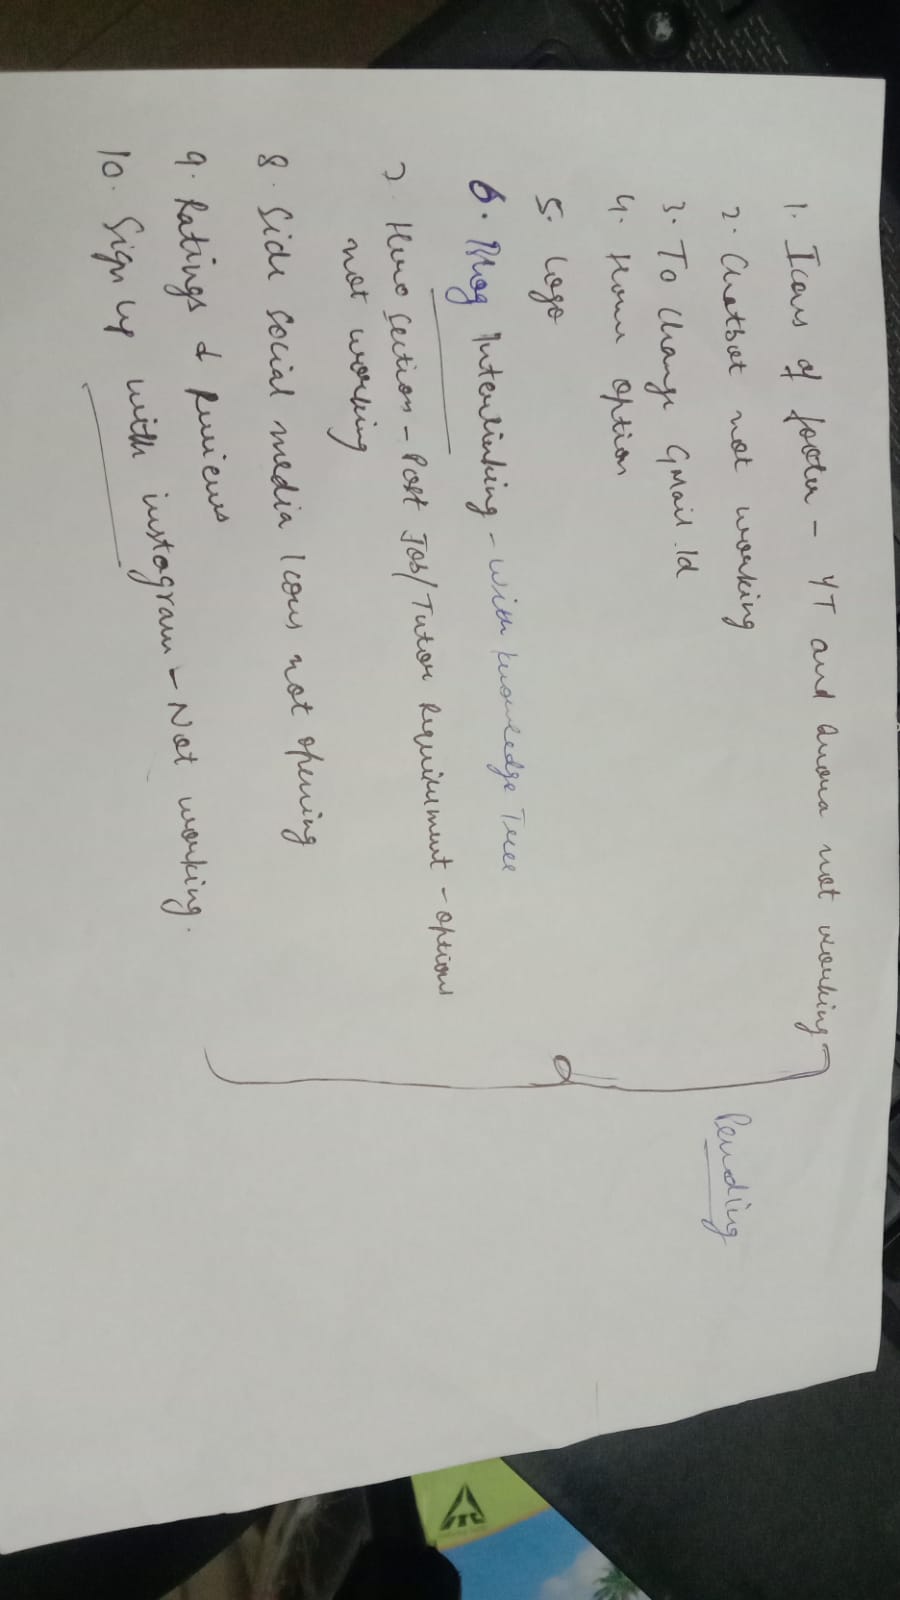 1. Icons of footer - YT and Quora not working
2. Chatbot not working
3. To change Gmail Id
4. Home option
5. Logo
6. Blog Interlinking - with knowledge Tree
7 Hero section - Post Job/Tutor Requirement - options
not working
8. Side social media Icons not opening
9. Ratings & Reviews
10. Sign up with instagram - Not working.
Pending